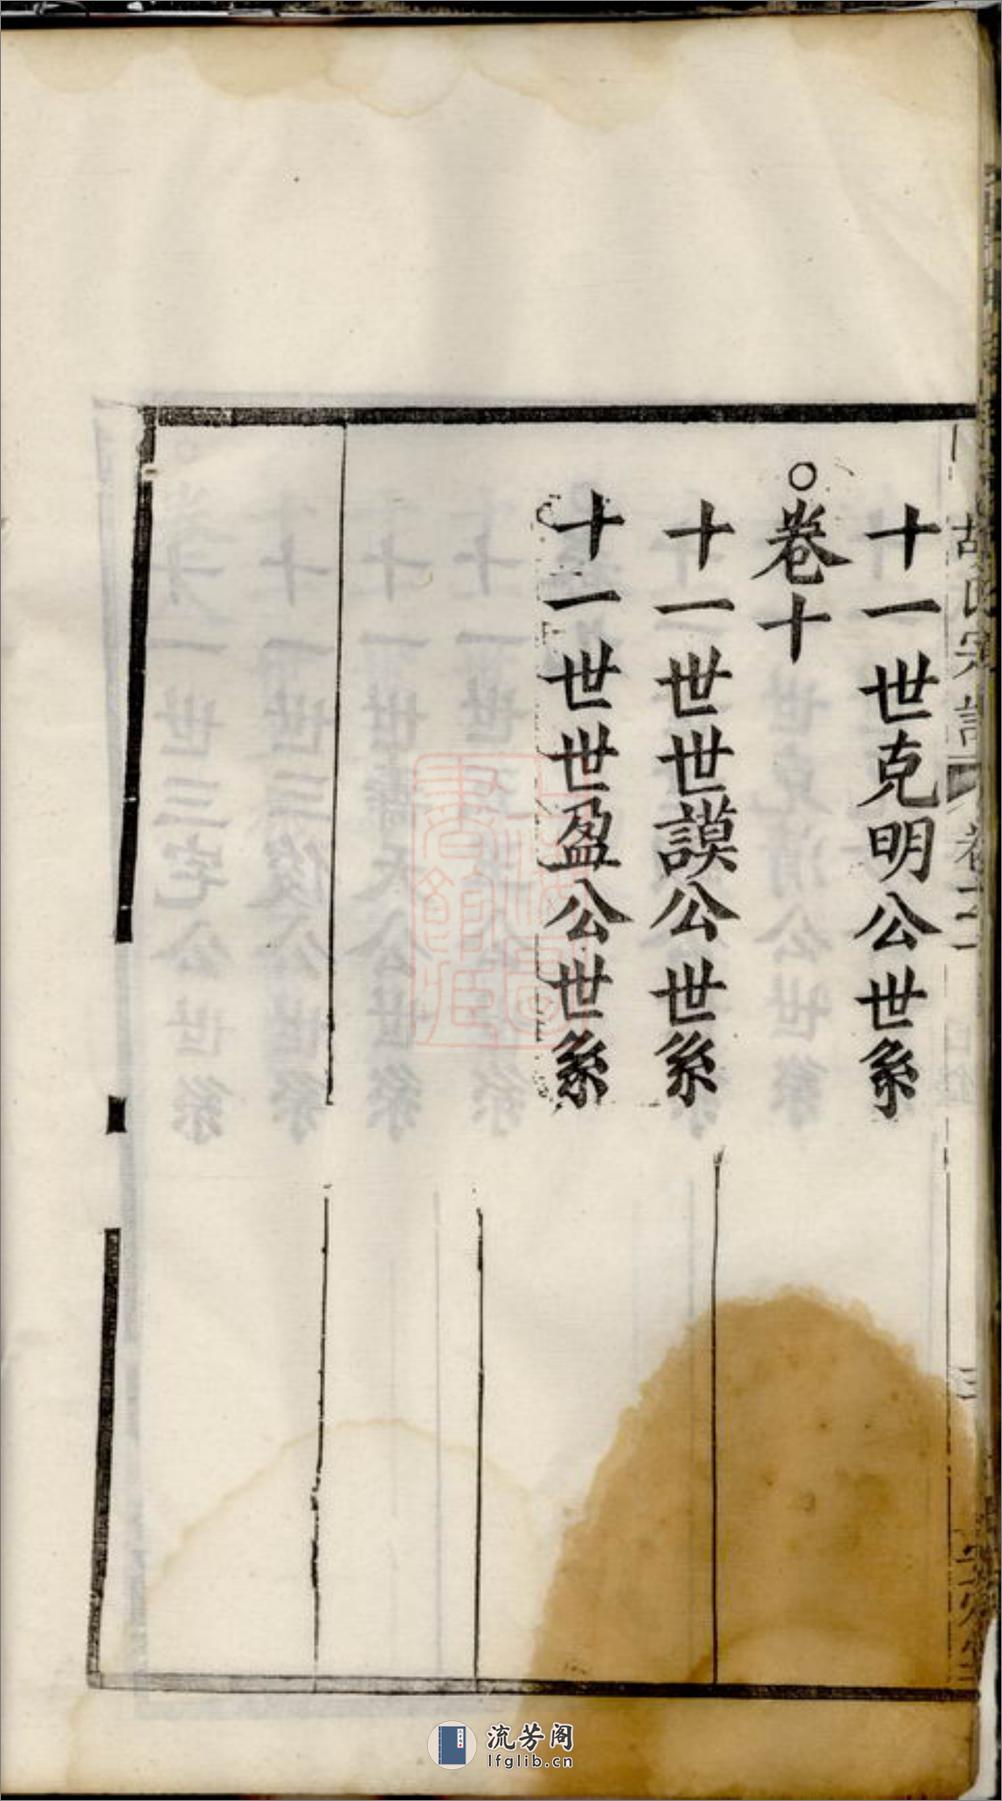 十一世克明公世系
○卷十
十一世世謨公世系
十一世世盈公世系
胡氏宗譜
流芳阁
lfglib.cn